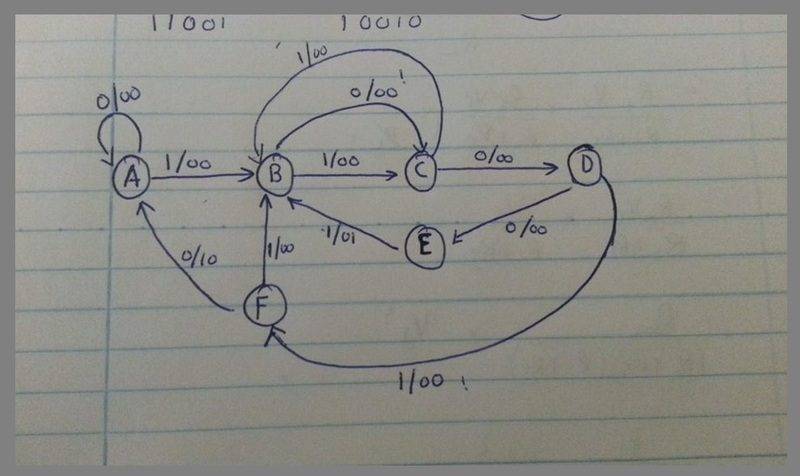 11001 10010
1/00
0/00 0/00!
A 1/00 B 1/00 C 0/00 D
0/10 1/00 1/01 E 0/00
F
1/00 !